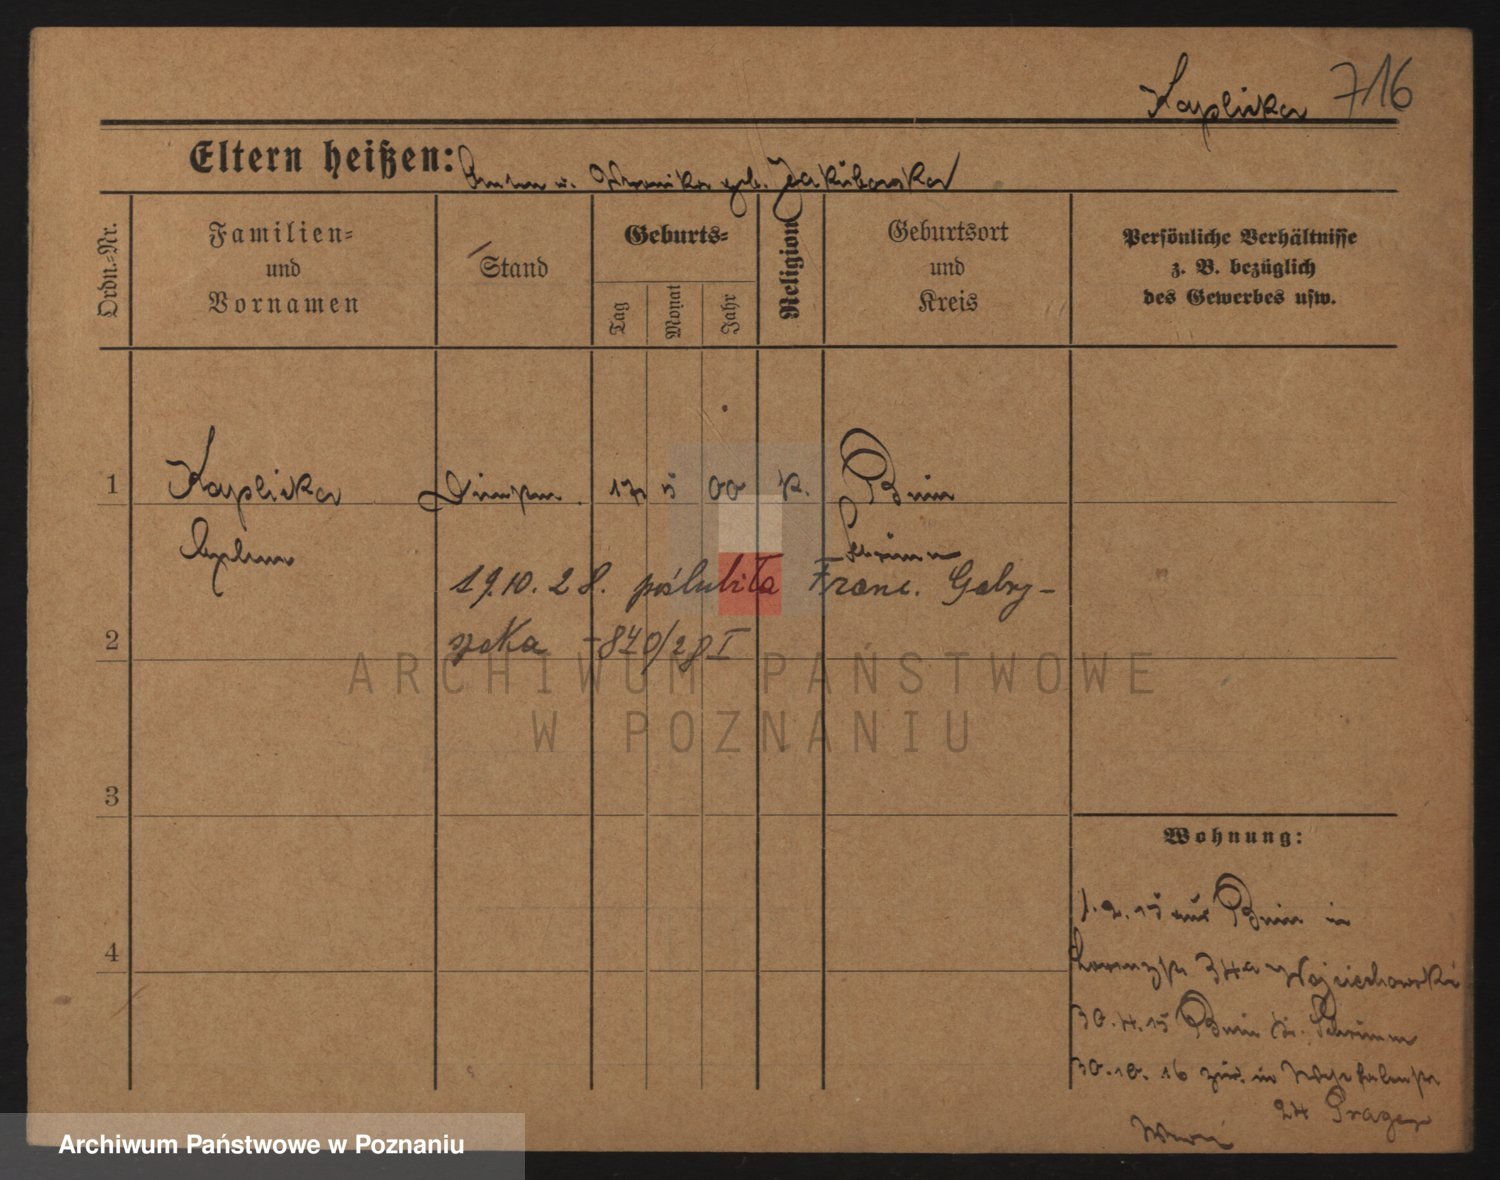 Kaplicka 716
Eltern heißen: Anton u. Veronika geb. Jakubowska
Ordn.-Nr.
Familien-
und
Vornamen
Stand
Geburts-
Tag
Monat
Jahr
Religion
Geburtsort
und
Kreis
Persönliche Verhältnisse
z. B. bezüglich
des Gewerbes usw.
1 Kaplicka 17 5 00 k. Bnin
Schrimm
19.10.28. poślubiła Franc. Gabry-
szaka -840/28 I
2
3
4
ARCHIWUM PAŃSTWOWE
W POZNANIU
Wohnung:
1.2.15 aus Bnin in
34a Wojciechowski
30.4.15 Bnin Kr. Schrimm
30.10.16 zur. in
24
Archiwum Państwowe w Poznaniu